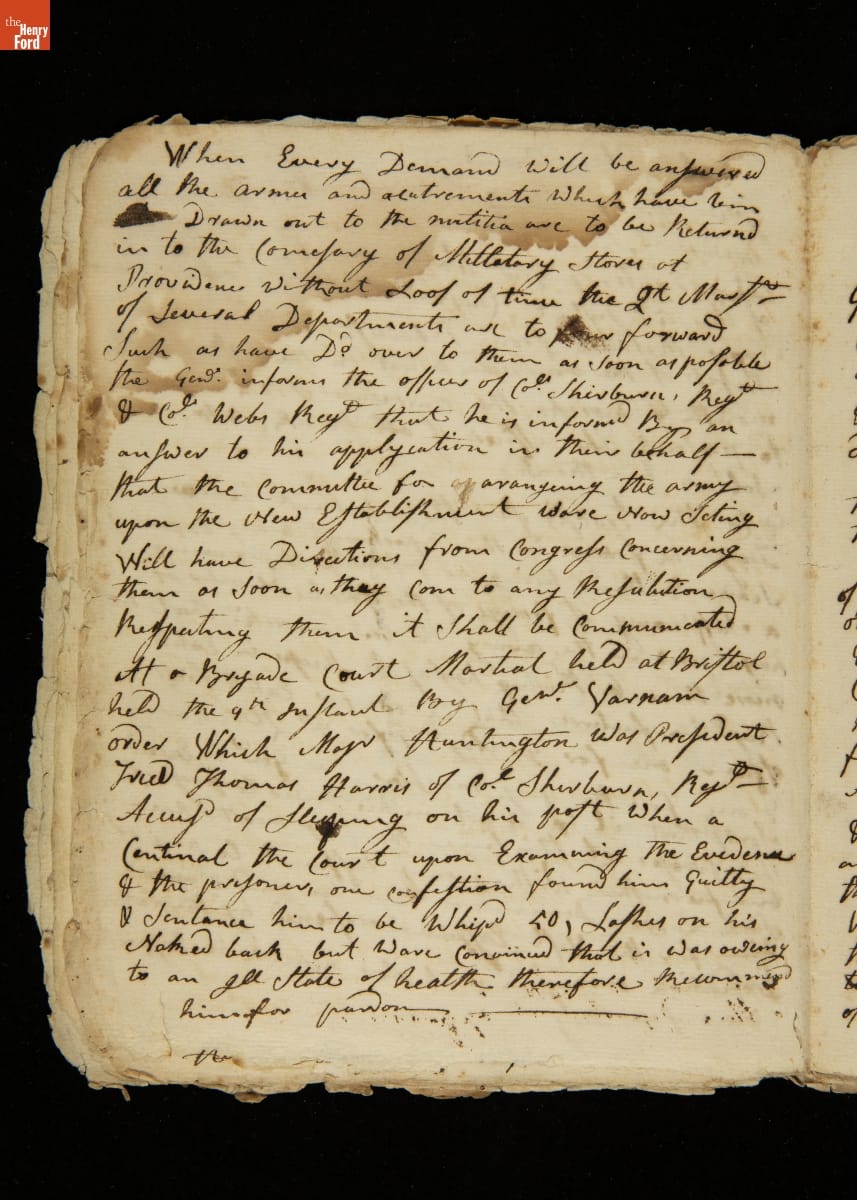 the Henry Ford
When Every Demand will be answered
all the armes and acutrements which have bin
Drawn out to the militia are to be Returnd
in to the Comesary of Milletary Stores at
Providence without Loss of time the Qt Mastrs
of Several Departments are to forward
Such as have Dd over to them as soon as posable
the Genl. informs the officers of Col. Shirburn, Regt
& Col. Webs Regt that he is informd By an
answer to his applycation in their behalf —
that the Committee for arangeing the army
upon the New Establishment ware now Seting
Will have Directions from Congress Concerning
them as Soon as they com to any Resulution
Respecting them it Shall be Communicated
At a Brigade Court Martial held at Bristol
held the 9th Instant By Genl. Varnam
order Which Majr Huntington was President
Tried Thomas Harris of Col. Sherburn, Regt —
Accusd of Sleeping on his post When a
Centinal the Court upon Examining the Evedence
& the prisoners, one confestion found him Guilty
& Sentance him to be Whipd 50, Lashes on his
Naked back but ware Convinced that is was oweing
to an Ill State of health therefore Recummend
him for pardon —
the